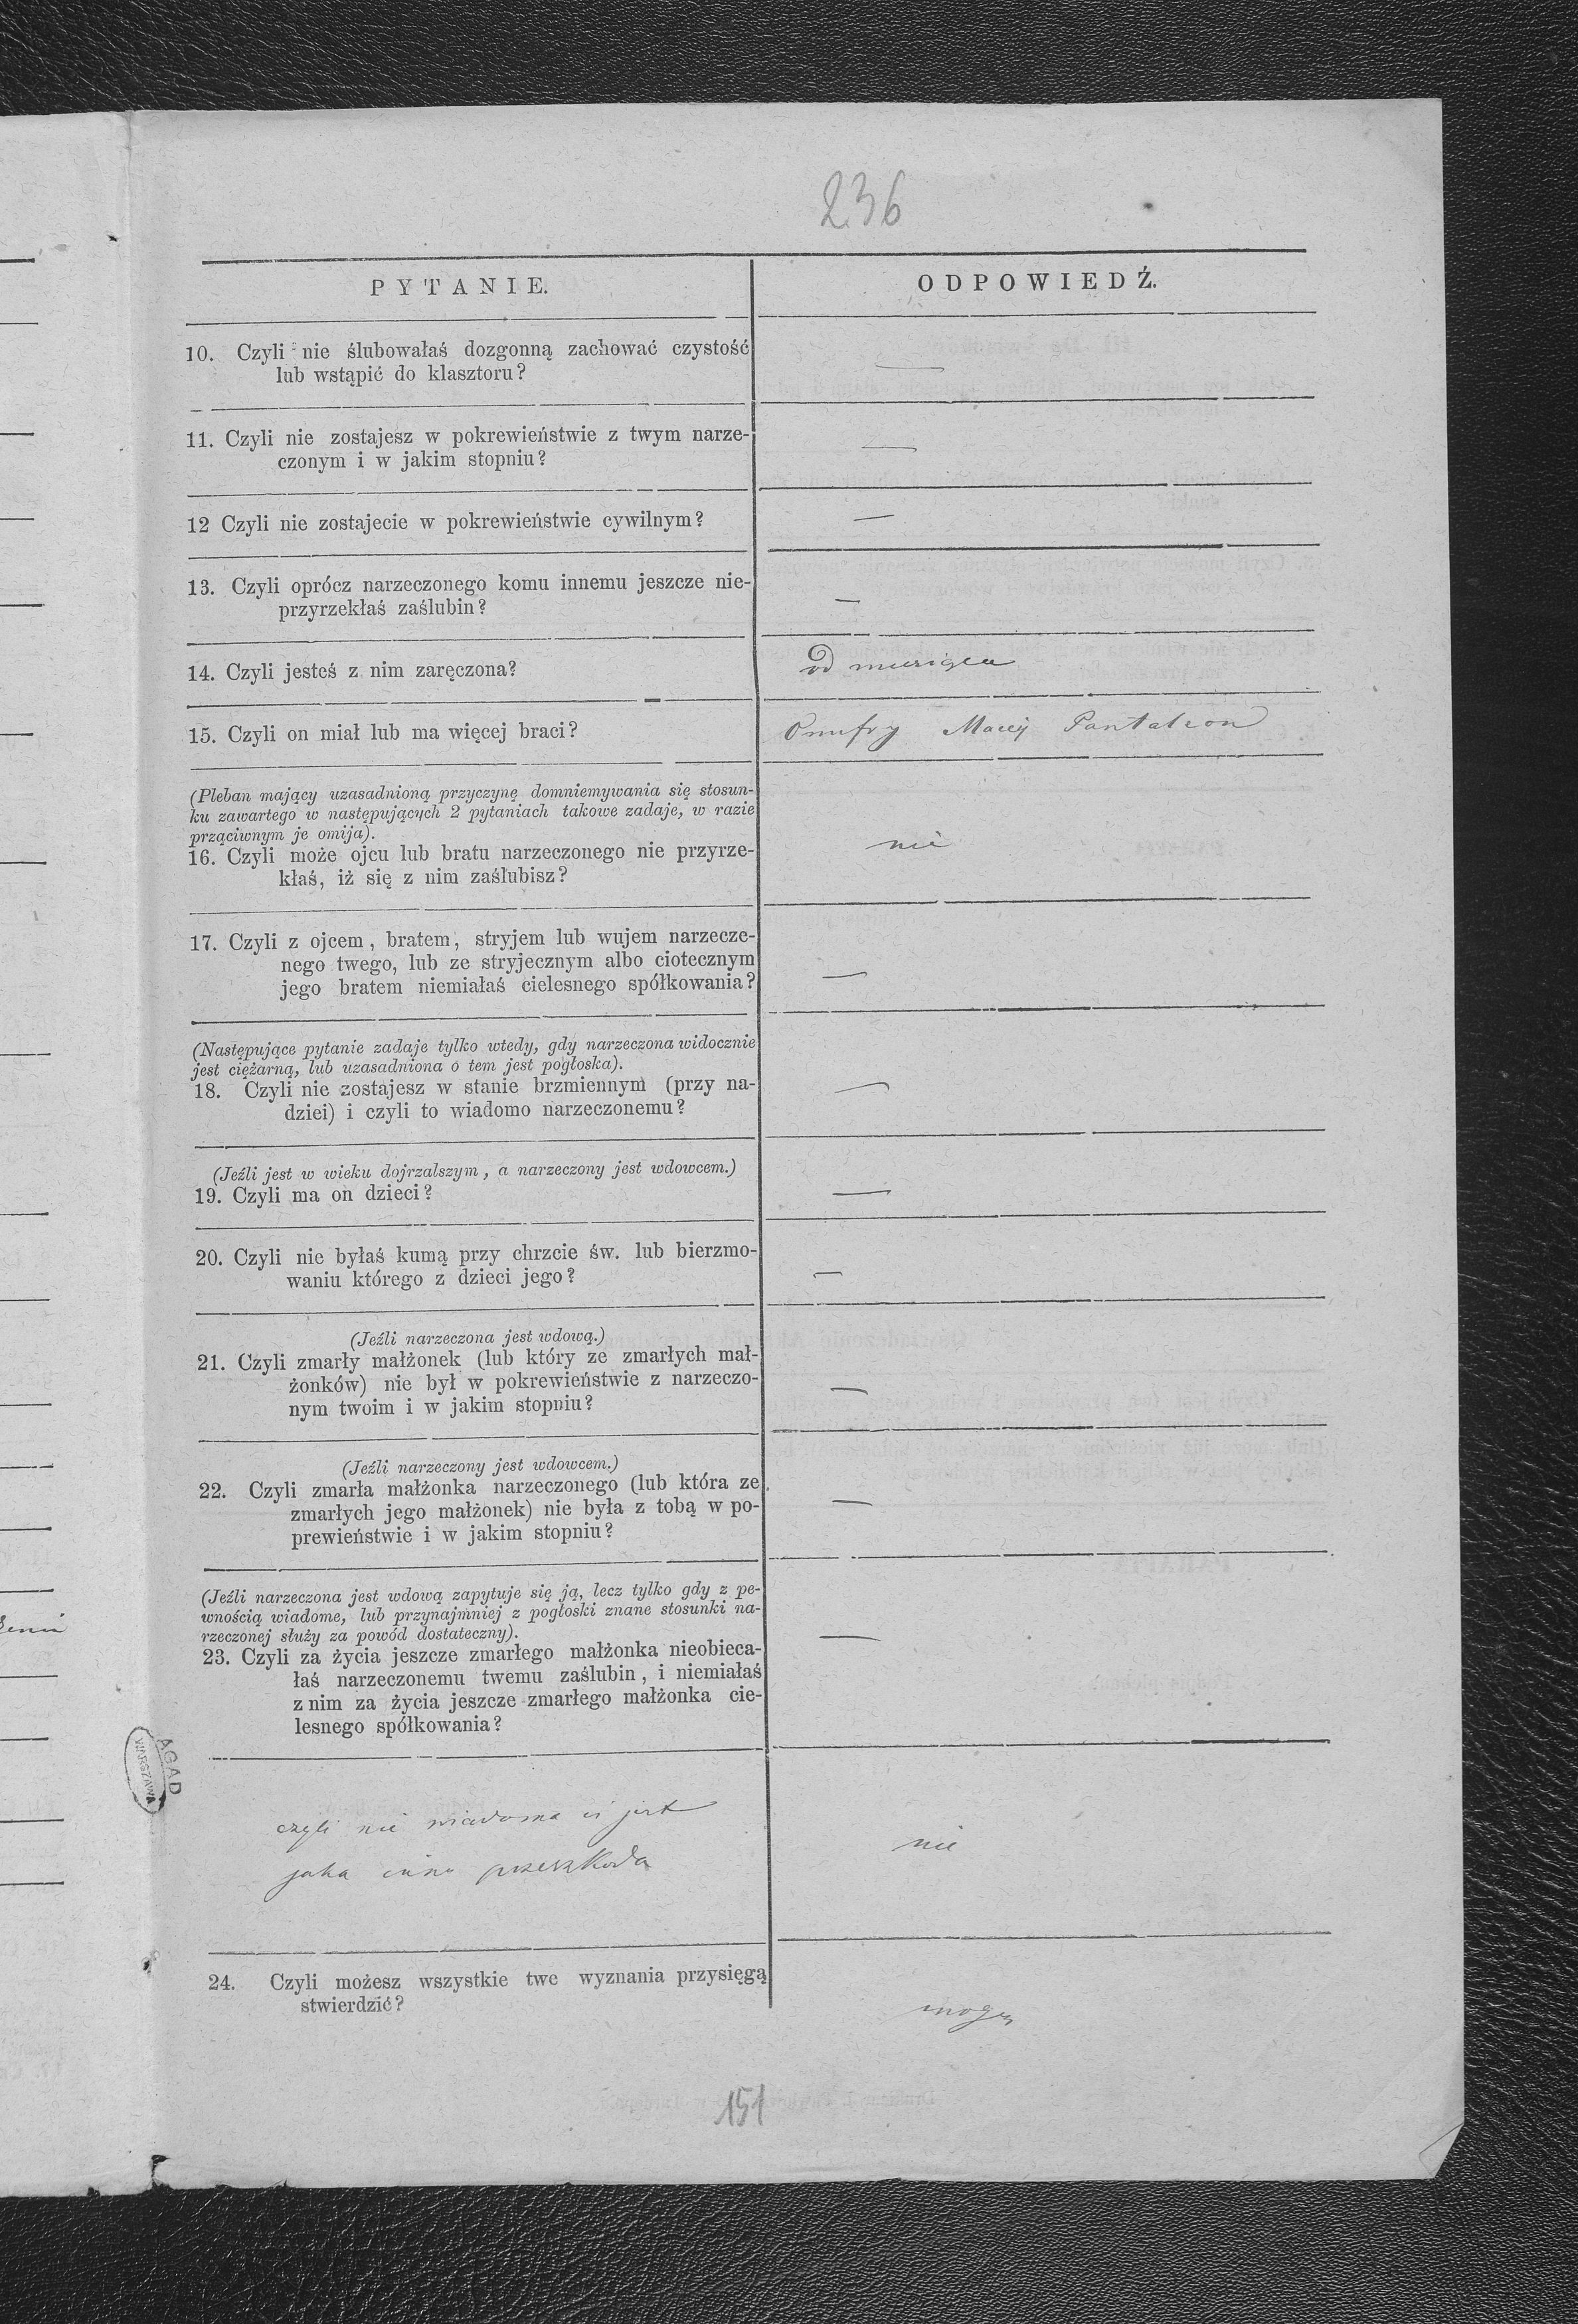 236
PYTANIE.
ODPOWIEDŹ.
10. Czyli nie ślubowałaś dozgonną zachować czystość
lub wstąpić do klasztoru?
—
11. Czyli nie zostajesz w pokrewieństwie z twym narze-
czonym i w jakim stopniu?
—
12 Czyli nie zostajecie w pokrewieństwie cywilnym?
—
13. Czyli oprócz narzeczonego komu innemu jeszcze nie-
przyrzekłaś zaślubin?
—
14. Czyli jesteś z nim zaręczona?
od miesiąca
15. Czyli on miał lub ma więcej braci?
Onufry Maciej Pantaleon
(Pleban mający uzasadnioną przyczynę domniemywania się stosun-
ku zawartego w następujących 2 pytaniach takowe zadaje, w razie
prząciwnym je omija).
16. Czyli może ojcu lub bratu narzeczonego nie przyrze-
kłaś, iż się z nim zaślubisz?
nie
17. Czyli z ojcem, bratem, stryjem lub wujem narzecze-
nego twego, lub ze stryjecznym albo ciotecznym
jego bratem niemiałaś cielesnego spółkowania?
—
(Następujące pytanie zadaje tylko wtedy, gdy narzeczona widocznie
jest ciężarną, lub uzasadniona o tem jest pogłoska).
18. Czyli nie zostajesz w stanie brzmiennym (przy na-
dziei) i czyli to wiadomo narzeczonemu?
—
(Jeźli jest w wieku dojrzalszym, a narzeczony jest wdowcem.)
19. Czyli ma on dzieci?
—
20. Czyli nie byłaś kumą przy chrzcie św. lub bierzmo-
waniu którego z dzieci jego?
—
(Jeźli narzeczona jest wdową.)
21. Czyli zmarły małżonek (lub który ze zmarłych mał-
żonków) nie był w pokrewieństwie z narzeczo-
nym twoim i w jakim stopniu?
—
(Jeźli narzeczony jest wdowcem.)
22. Czyli zmarła małżonka narzeczonego (lub która ze
zmarłych jego małżonek) nie była z tobą w po-
prewieństwie i w jakim stopniu?
—
(Jeźli narzeczona jest wdową zapytuje się ją, lecz tylko gdy z pe-
wnością wiadome, lub przynajmniej z pogłoski znane stosunki na-
rzeczonej służy za powód dostateczny).
23. Czyli za życia jeszcze zmarłego małżonka nieobieca-
łaś narzeczonemu twemu zaślubin, i niemiałaś
z nim za życia jeszcze zmarłego małżonka cie-
lesnego spółkowania?
—
AGAD
WARSZAWA
czyli nie wiadoma ci jest
jaka inna przeszkoda
nie
24. Czyli możesz wszystkie twe wyznania przysięgą
stwierdzić?
mogę
151